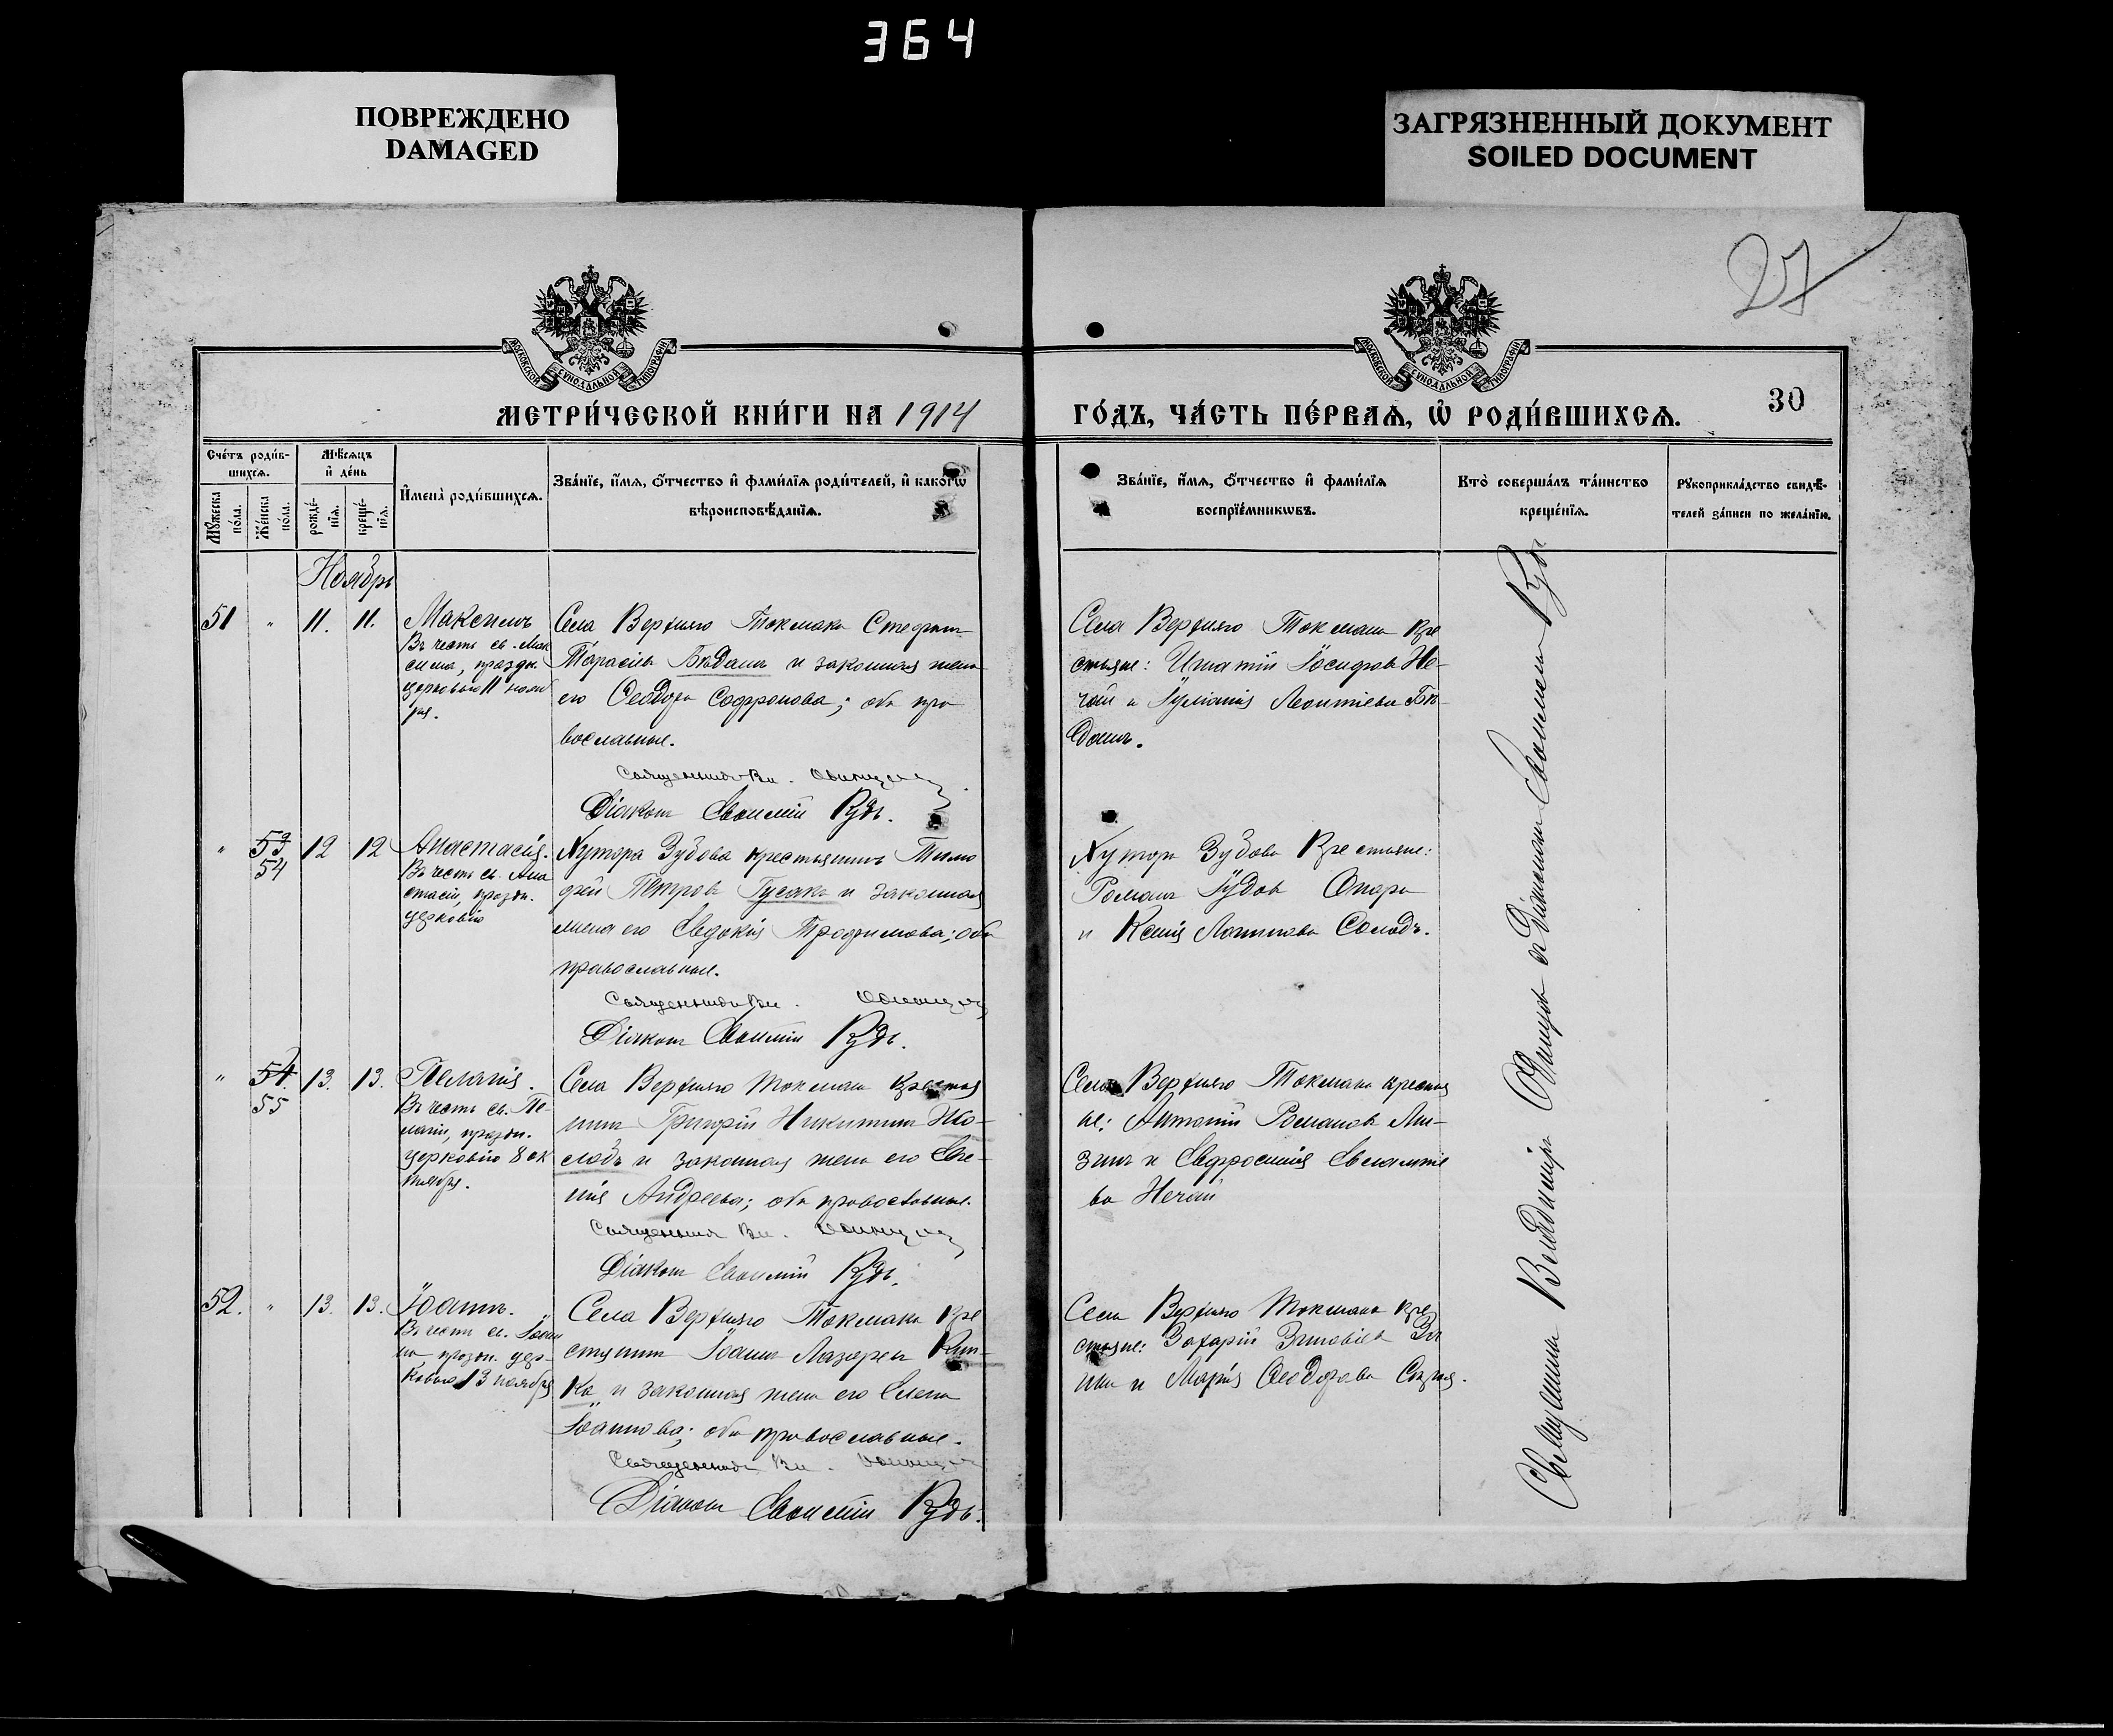 364
ПОВРЕЖДЕНО
DAMAGED
ЗАГРЯЗНЕННЫЙ ДОКУМЕНТ
SOILED DOCUMENT
27
МОСКОВСКОЙ СѴНОДАЛЬНОЙ ТИПОГРАФІИ
МОСКОВСКОЙ СѴНОДАЛЬНОЙ ТИПОГРАФІИ
МЕТРИ́ЧЕСКОЙ КНИ́ГИ НА 1914
ГО́ДЪ, ЧА́СТЬ ПЕ́РВАѦ, Ѿ РОДИ́ВШИХСѦ.
30
Сче́тъ роди́в-
шихсѧ.
Мѣ́сѧцъ
и҆ де́нь
Мꙋ́жеска
по́ла.
Же́нска
по́ла.
рожде́-
нїѧ.
креще́-
нїѧ.
И҆мена̀ роди́вшихсѧ.
Зва́нїе, и҆́мѧ, о҆́тчество и҆ фами́лїѧ роди́телей, и҆ како́гѡ
вѣроисповѣ́данїѧ.
Зва́нїе, и҆́мѧ, о҆́тчество и҆ фами́лїѧ
воспрїе́мникѡвъ.
Кто̀ соверша́лъ та́инство
креще́нїѧ.
Рꙋкоприкла́дство свидѣ́-
телей за́писи по жела́нїю.
Ноябрь
51 " 11. 11. Максимъ
Въ честь св. Мак
сима, праздн.
церковью 11 нояб
ря.
Села Верхняго Токмака Стефанъ
Тарасіевъ Бѣдашъ и законная жена
его Ѳеодора Софронова; оба пра
вославные.
Священникъ Вл. Одинцовъ
Діаконъ Евѳимій Рудь.
Села Верхняго Токмака кре
стьяне: Игнатій Іосифовъ Не-
чай и Іуліанія Леонтіева Бѣ-
дашъ.
" 53 12 12 Анастасія.
54
Въ честь св. Ана
стасіи, праздн.
церковію
Хутора Зубова крестьянинъ Тимо
фей Петровъ Гусакъ и законная
жена его Евдокія Трофимова; оба
православные.
Священникъ Вл. Одинцовъ
Діаконъ Евѳимій Рудь.
Хутора Зубова Крестьяне:
Романъ Іудовъ Опара
и Ксенія Логинова Солодъ.
" 54. 13. 13. Пелагія.
55
Въ честь св. Пе-
лагіи, праздн.
церковію 8 ок
тября.
Села Верхняго Токмака крестья
нинъ Григорій Никитинъ
и законная жена его Евге-
нія Андреева; оба православные.
Священникъ Вл. Одинцовъ
Діаконъ Евѳимій Рудь.
Села Верхняго Токмака крестья
не: Антоній Романовъ
и Евфросинія Евлампіе
ва Нечай
52. " 13. 13. Іоаннъ.
Въ честь св. Іоан
на, праздн. цер-
ковью 13 ноября
Села Верхняго Токмака кре
стянинъ Іоаннъ Лазаревъ
и законная жена его Елена
Іоаннова; оба православные.
Священникъ Вл. Одинцовъ
Діаконъ Евѳимій Рудь.
Села Верхняго Токмака кре
стьяне: Захарій Зиновіевъ
и Марія Ѳеодорова
Священникъ Владиміръ Одинцовъ съ Діакономъ Евѳиміемъ Рудь